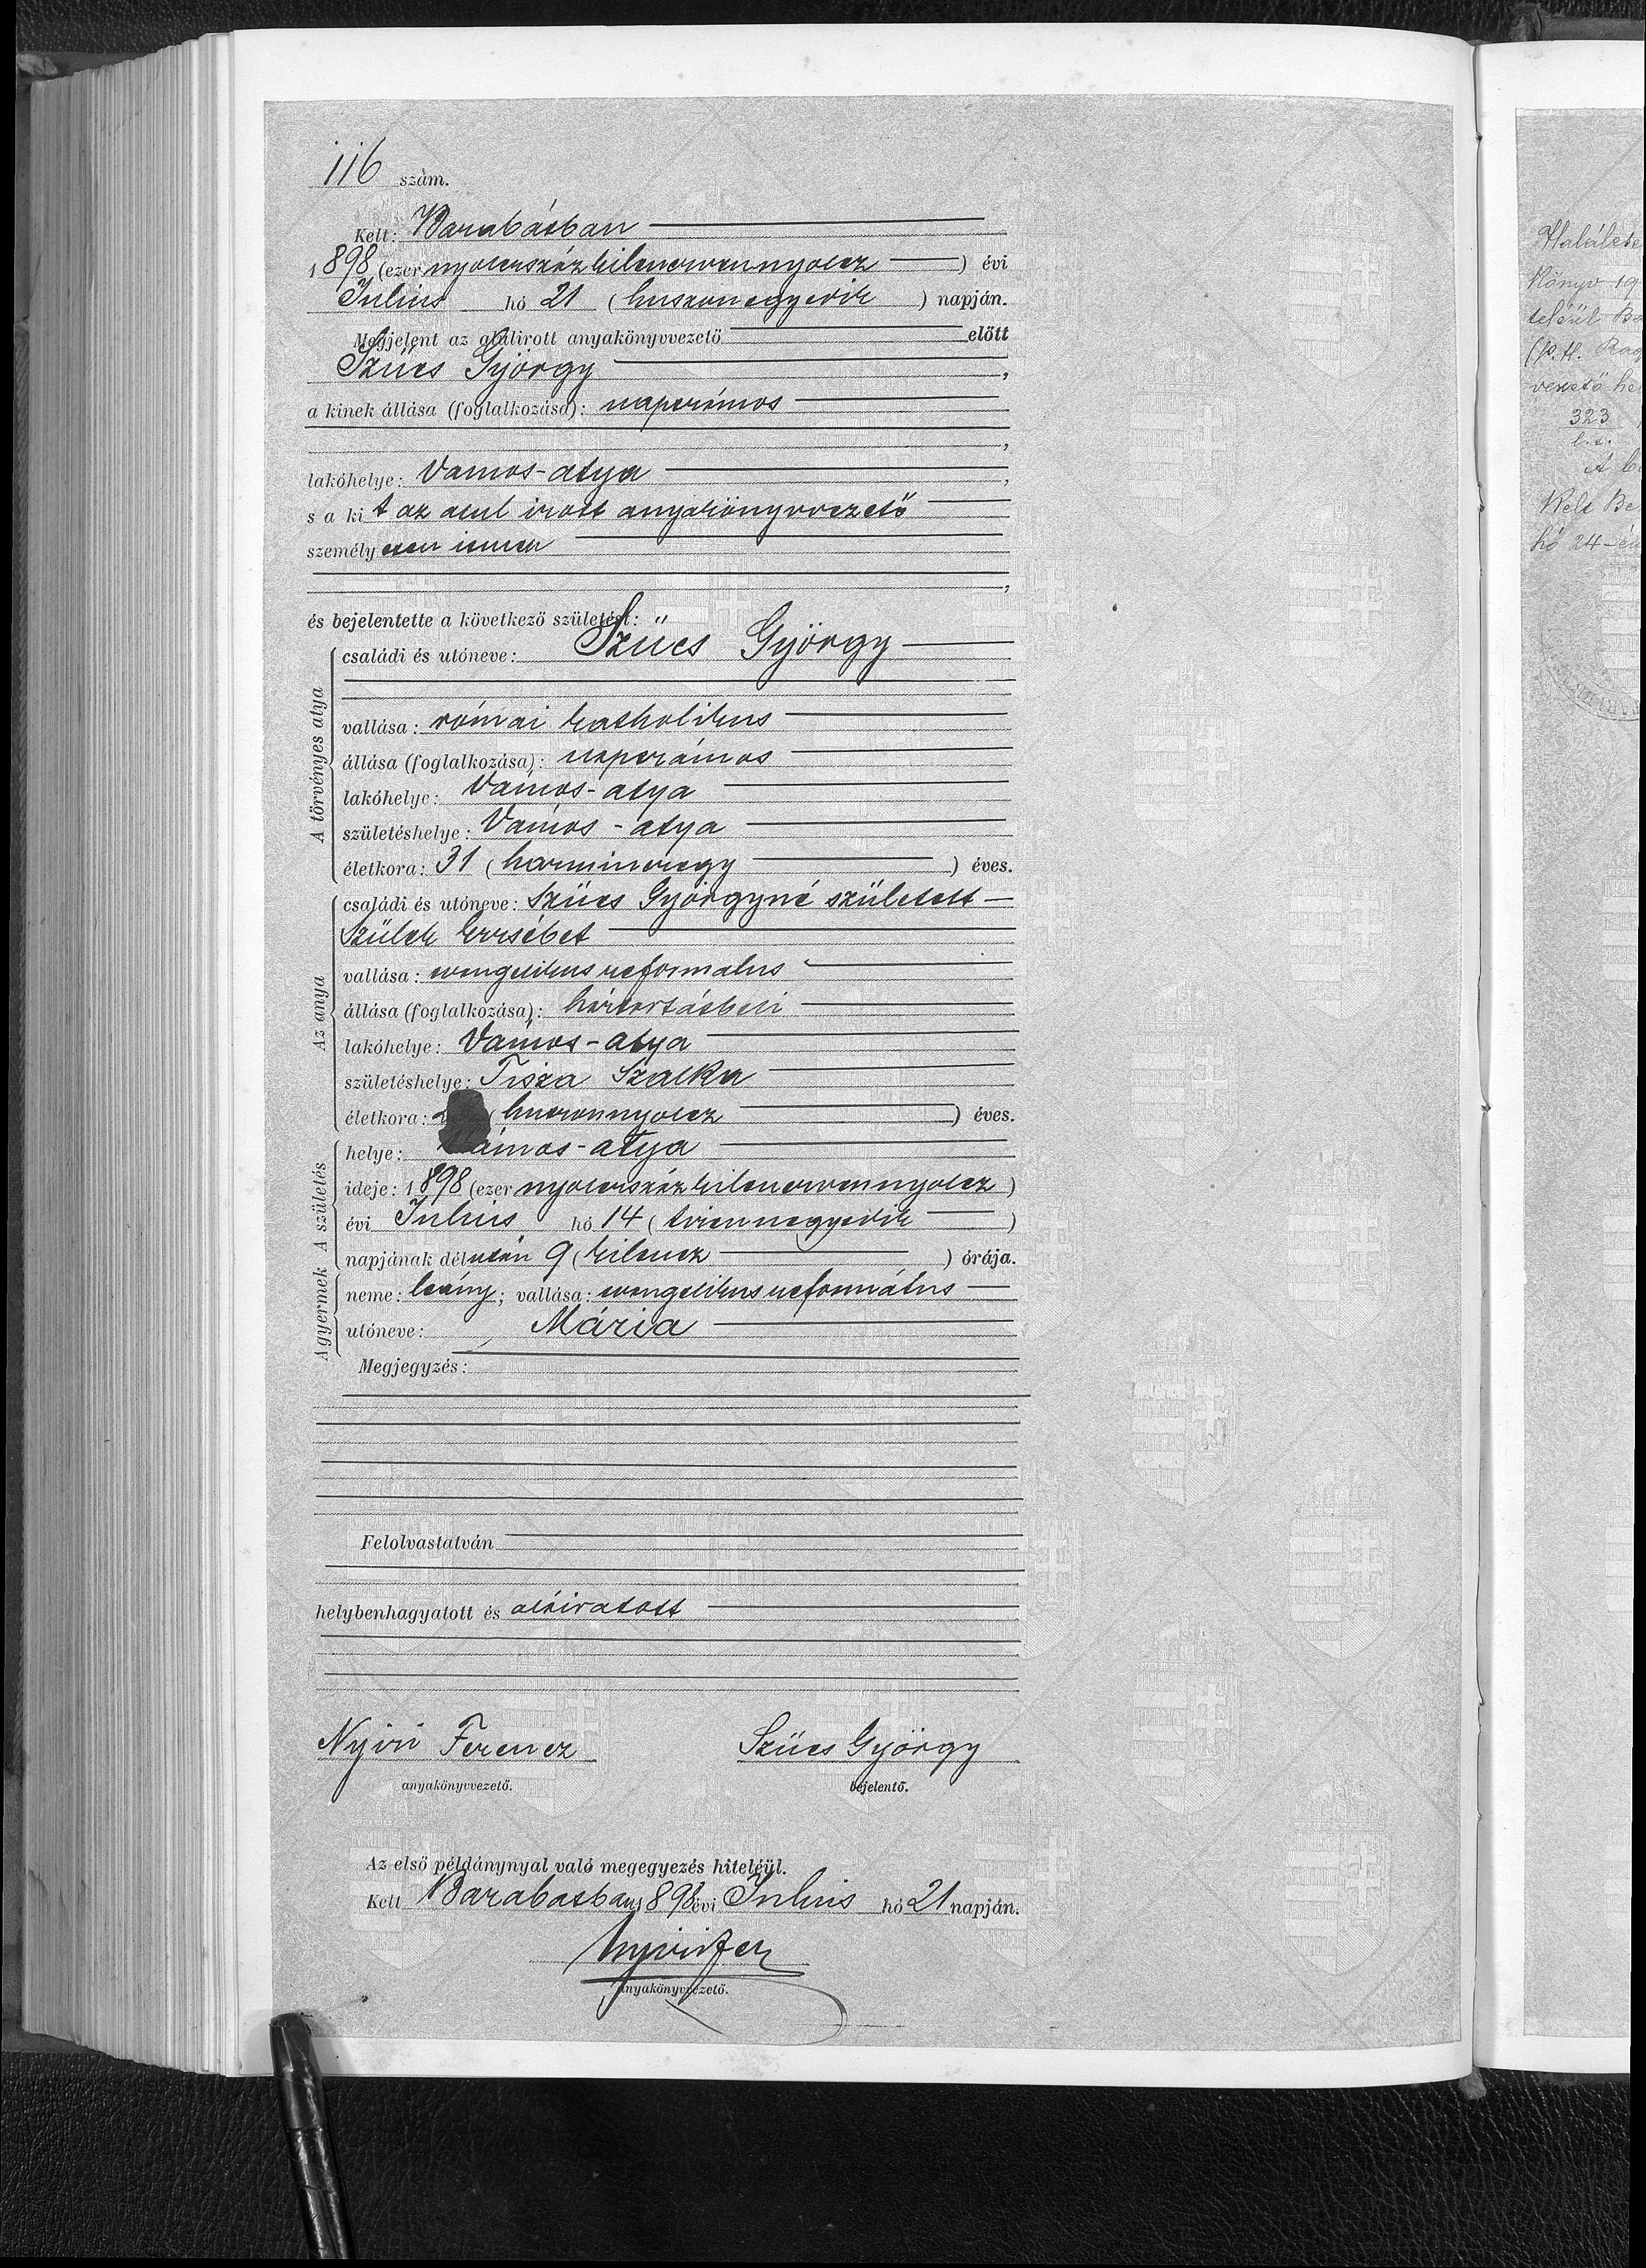 116 szám.
Kelt: Barabásban
1898 (ezer nyolczszáz kilenczven nyolcz) évi
Július hó 21 (huszonegyedik) napján.
Megjelent az alulirott anyakönyvvezető előtt
Szücs György,
a kinek állása (foglalkozása): napszámos
,
lakóhelye: Vámos-atya,
s a kit az alul irott anyakönyvvezető
személyesen ismer
,
és bejelentette a következő születést:
A törvényes atya
családi és utóneve: Szücs György
vallása: római katholikus
állása (foglalkozása): napszámos
lakóhelye: Vámos-atya
születéshelye: Vámos-atya
életkora: 31 (harminczegy) éves.
Az anya
családi és utóneve: Szücs Györgyné született
Szülek Erzsébet
vallása: evangelikus reformatus
állása (foglalkozása): háztartásbeli
lakóhelye: Vámos-atya
születéshelye: Tisza Szalka
életkora: (huszonnyolcz) éves.
A születés
helye: Vámos-atya
ideje: 1898 (ezer nyolczszáz kilenczven nyolcz)
évi Július hó 14 (tizennegyedik)
napjának délután 9 (kilencz) órája.
A gyermek
neme: leány; vallása: evangelikus református
utóneve: Mária
Megjegyzés:
Felolvastatván
helybenhagyatott és aláiratott
Nyiri Ferencz Szücs György
anyakönyvvezető. bejelentő.
Az első példánynyal való megegyezés hiteléül.
Kelt Barabásban 1898 évi Július hó 21 napján.
Nyiri Fer
anyakönyvvezető.
Könyv 19
(P. H.
vezető he
323
Kelt Be
hó 24-én